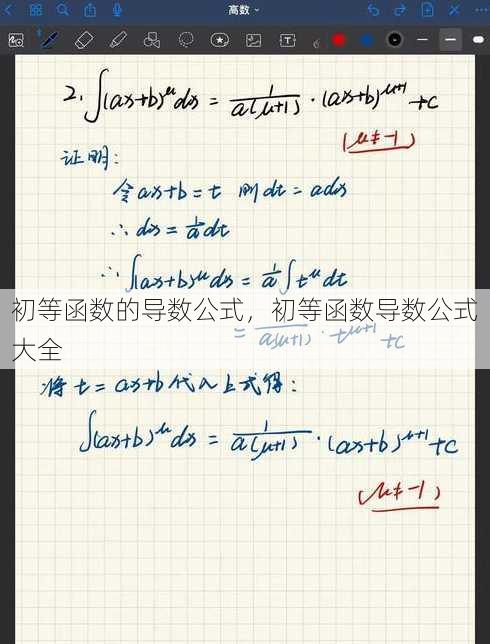 高数
2. ∫(ax+b)^μ dx = 1/a(μ+1) · (ax+b)^μ+1 + C
(μ≠-1)
证明:
令 ax+b = t 则 dt = adx
∴ dx = 1/a dt
∴ ∫(ax+b)^μ dx = 1/a ∫ t^μ dt
初等函数的导数公式，初等函数导数公式
大全
= 1/a(μ+1) · t^μ+1 + C
将 t = ax+b 代入上式得:
∫(ax+b)^μ dx = 1/a(μ+1) · (ax+b)^μ+1 + C
(μ≠-1)